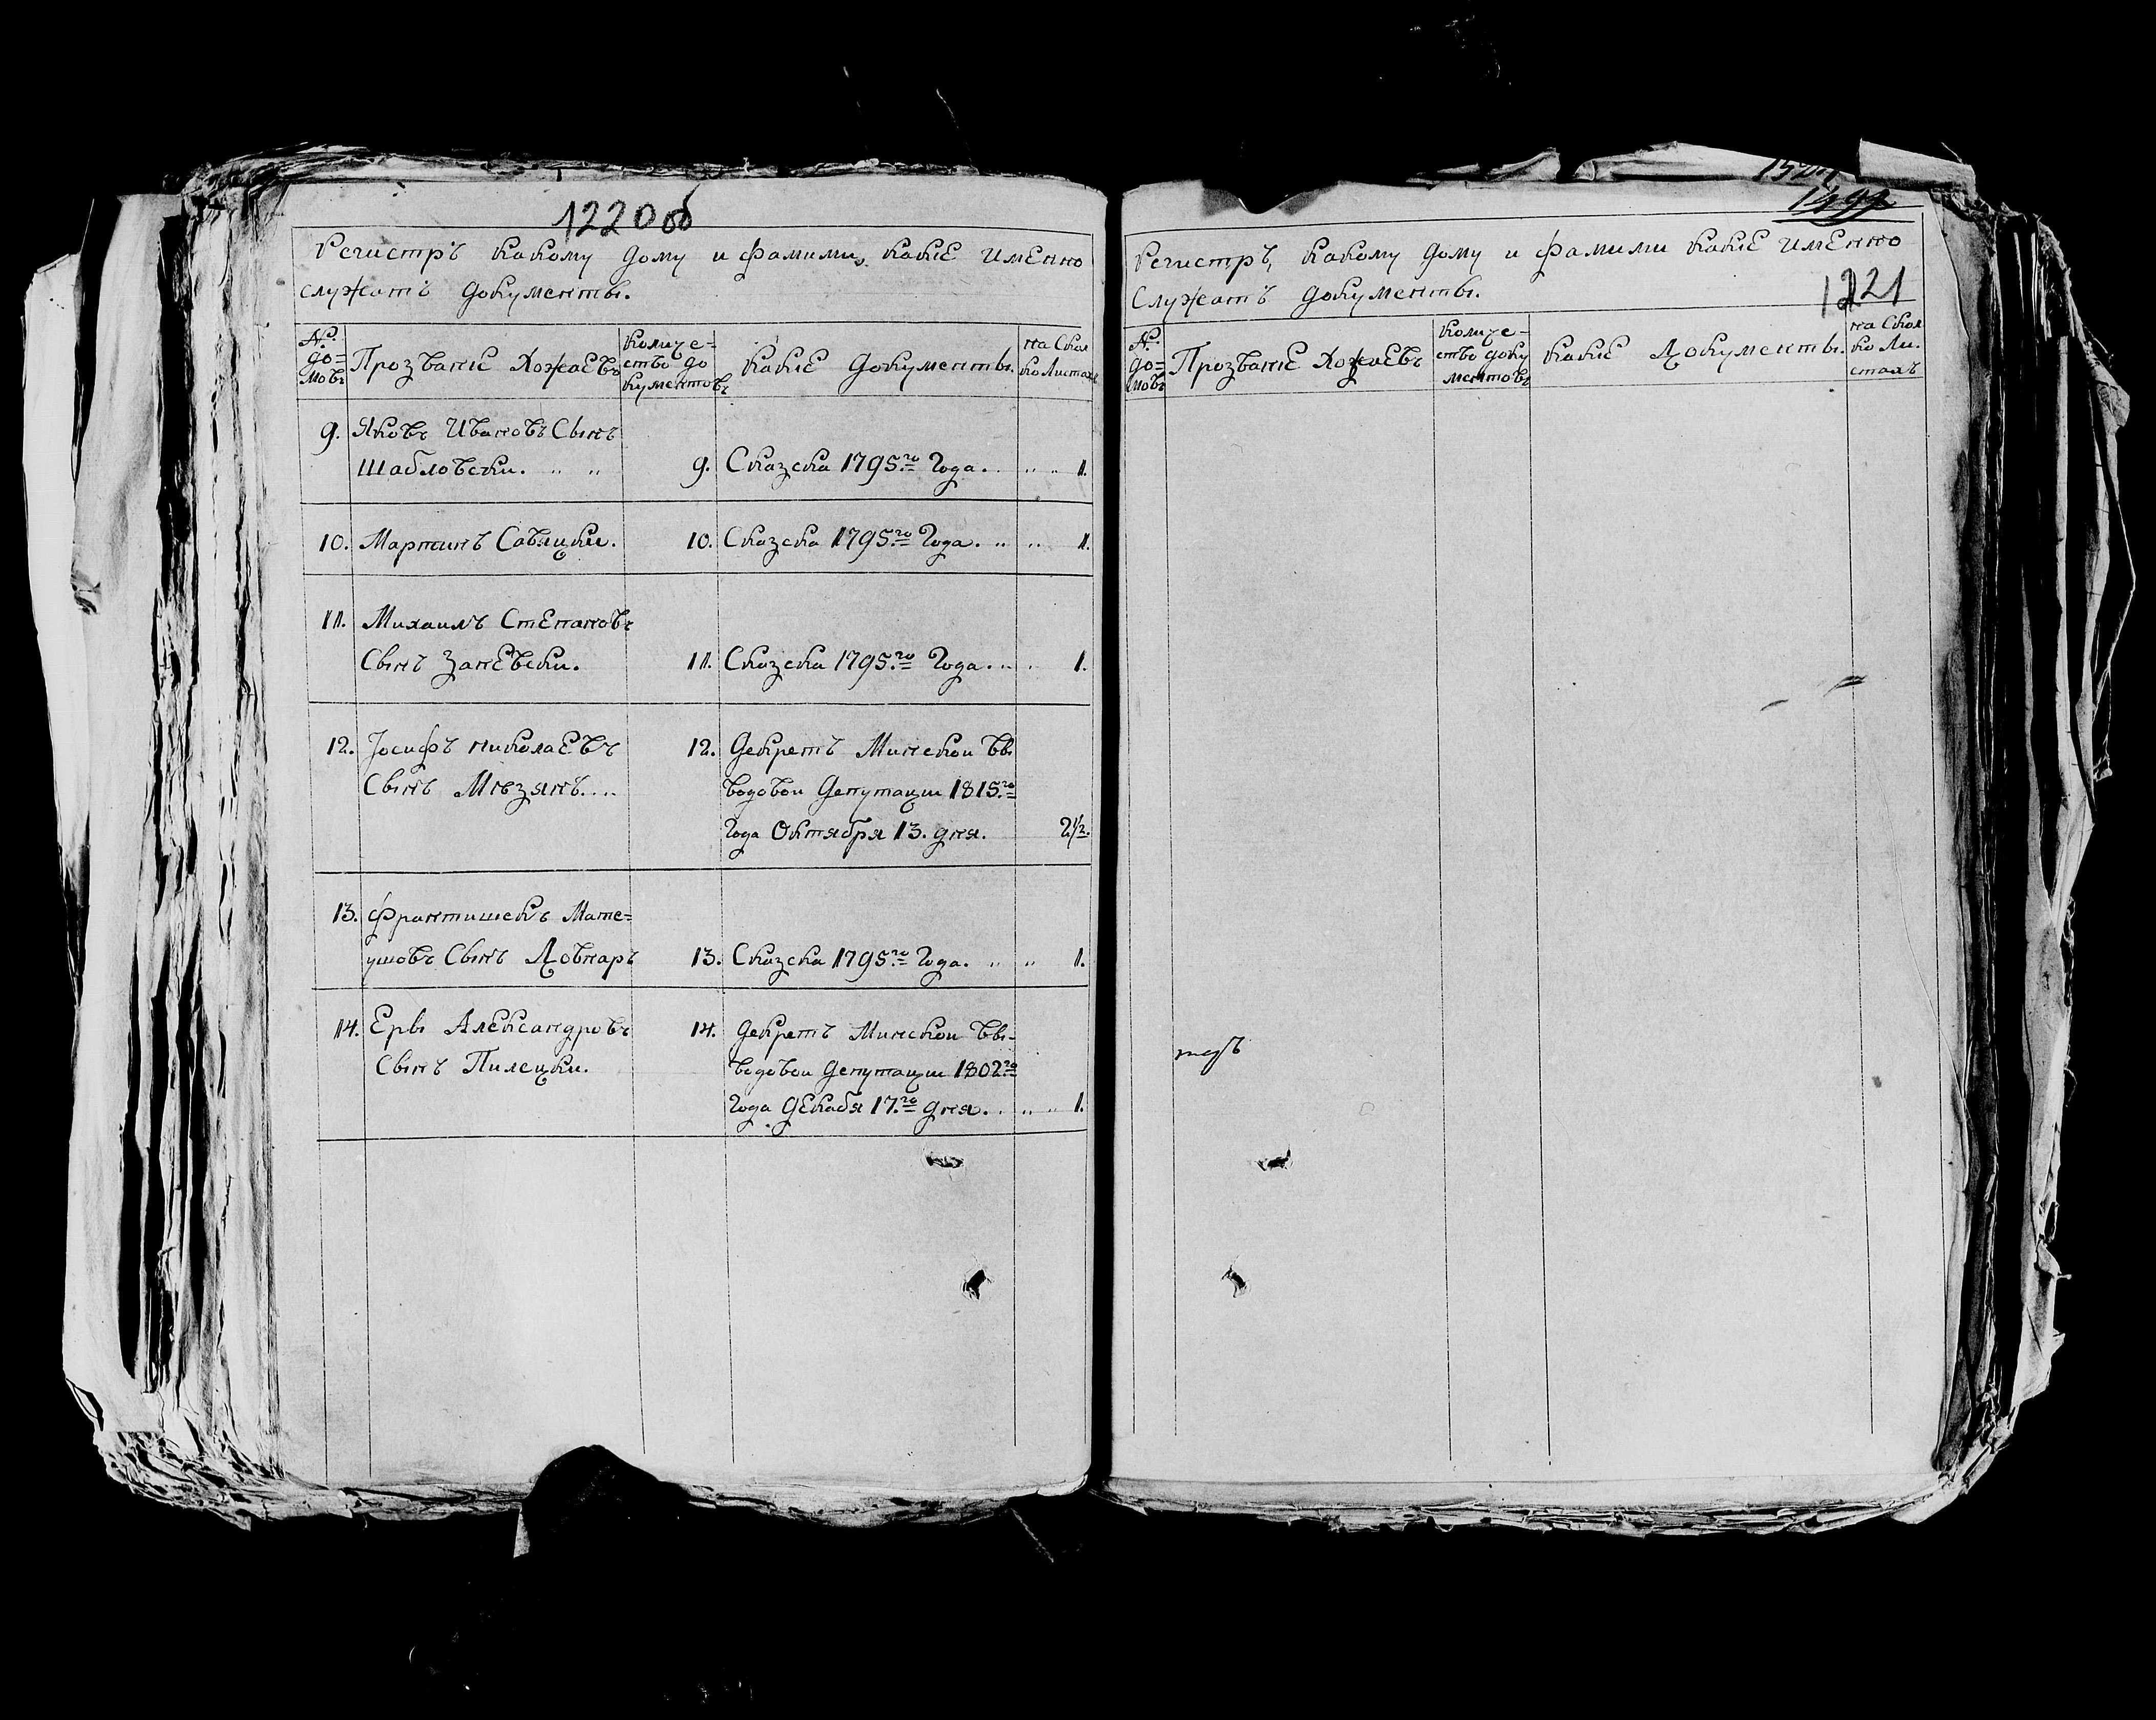 1220об
Регистръ какому дому и фамили, какіе именно
служатъ документы.
№:
до=
мовъ
Прозваніе Хожаевъ
количе=
ство до
кументовъ
какіе документы.
на скол
ко листахъ
9. Яковъ Ивановъ Сынъ
Шабловски. „ „ 9. Сказска 1795.го Года. . „ „ 1.
10. Мартинъ Савицки. 10. Сказска 1795.го Года. „ „ 1.
11. Михаилъ Степановъ
Сынъ Заневски. 11. Сказска 1795.го Года. „ „ 1.
12. Іосифъ николаевъ 12. Декретъ Минскои Вы
Сынъ Мызянъ. . . . водовои Депутации 1815.го
Года Октября 13. дня. 2½.
13. Франтишекъ Мате=
ушовъ Сынъ Довнаръ 13. Сказска 1795.го Года. „ „ 1.
14. Еры Александровъ 14. Декретъ Минскои Вы-
Сынъ Пилецки. водовои Депутации 1802.го
Года Декабя 17.го дня. . „ „ 1.
1221
Регистръ, какому дому и фамили какіе именно
Служатъ документы.
№:
до=
мовъ
Прозваніе Хожаевъ
количе-
ство доку
ментовъ
какіе Документы.
на скол
ко ли.
стахъ